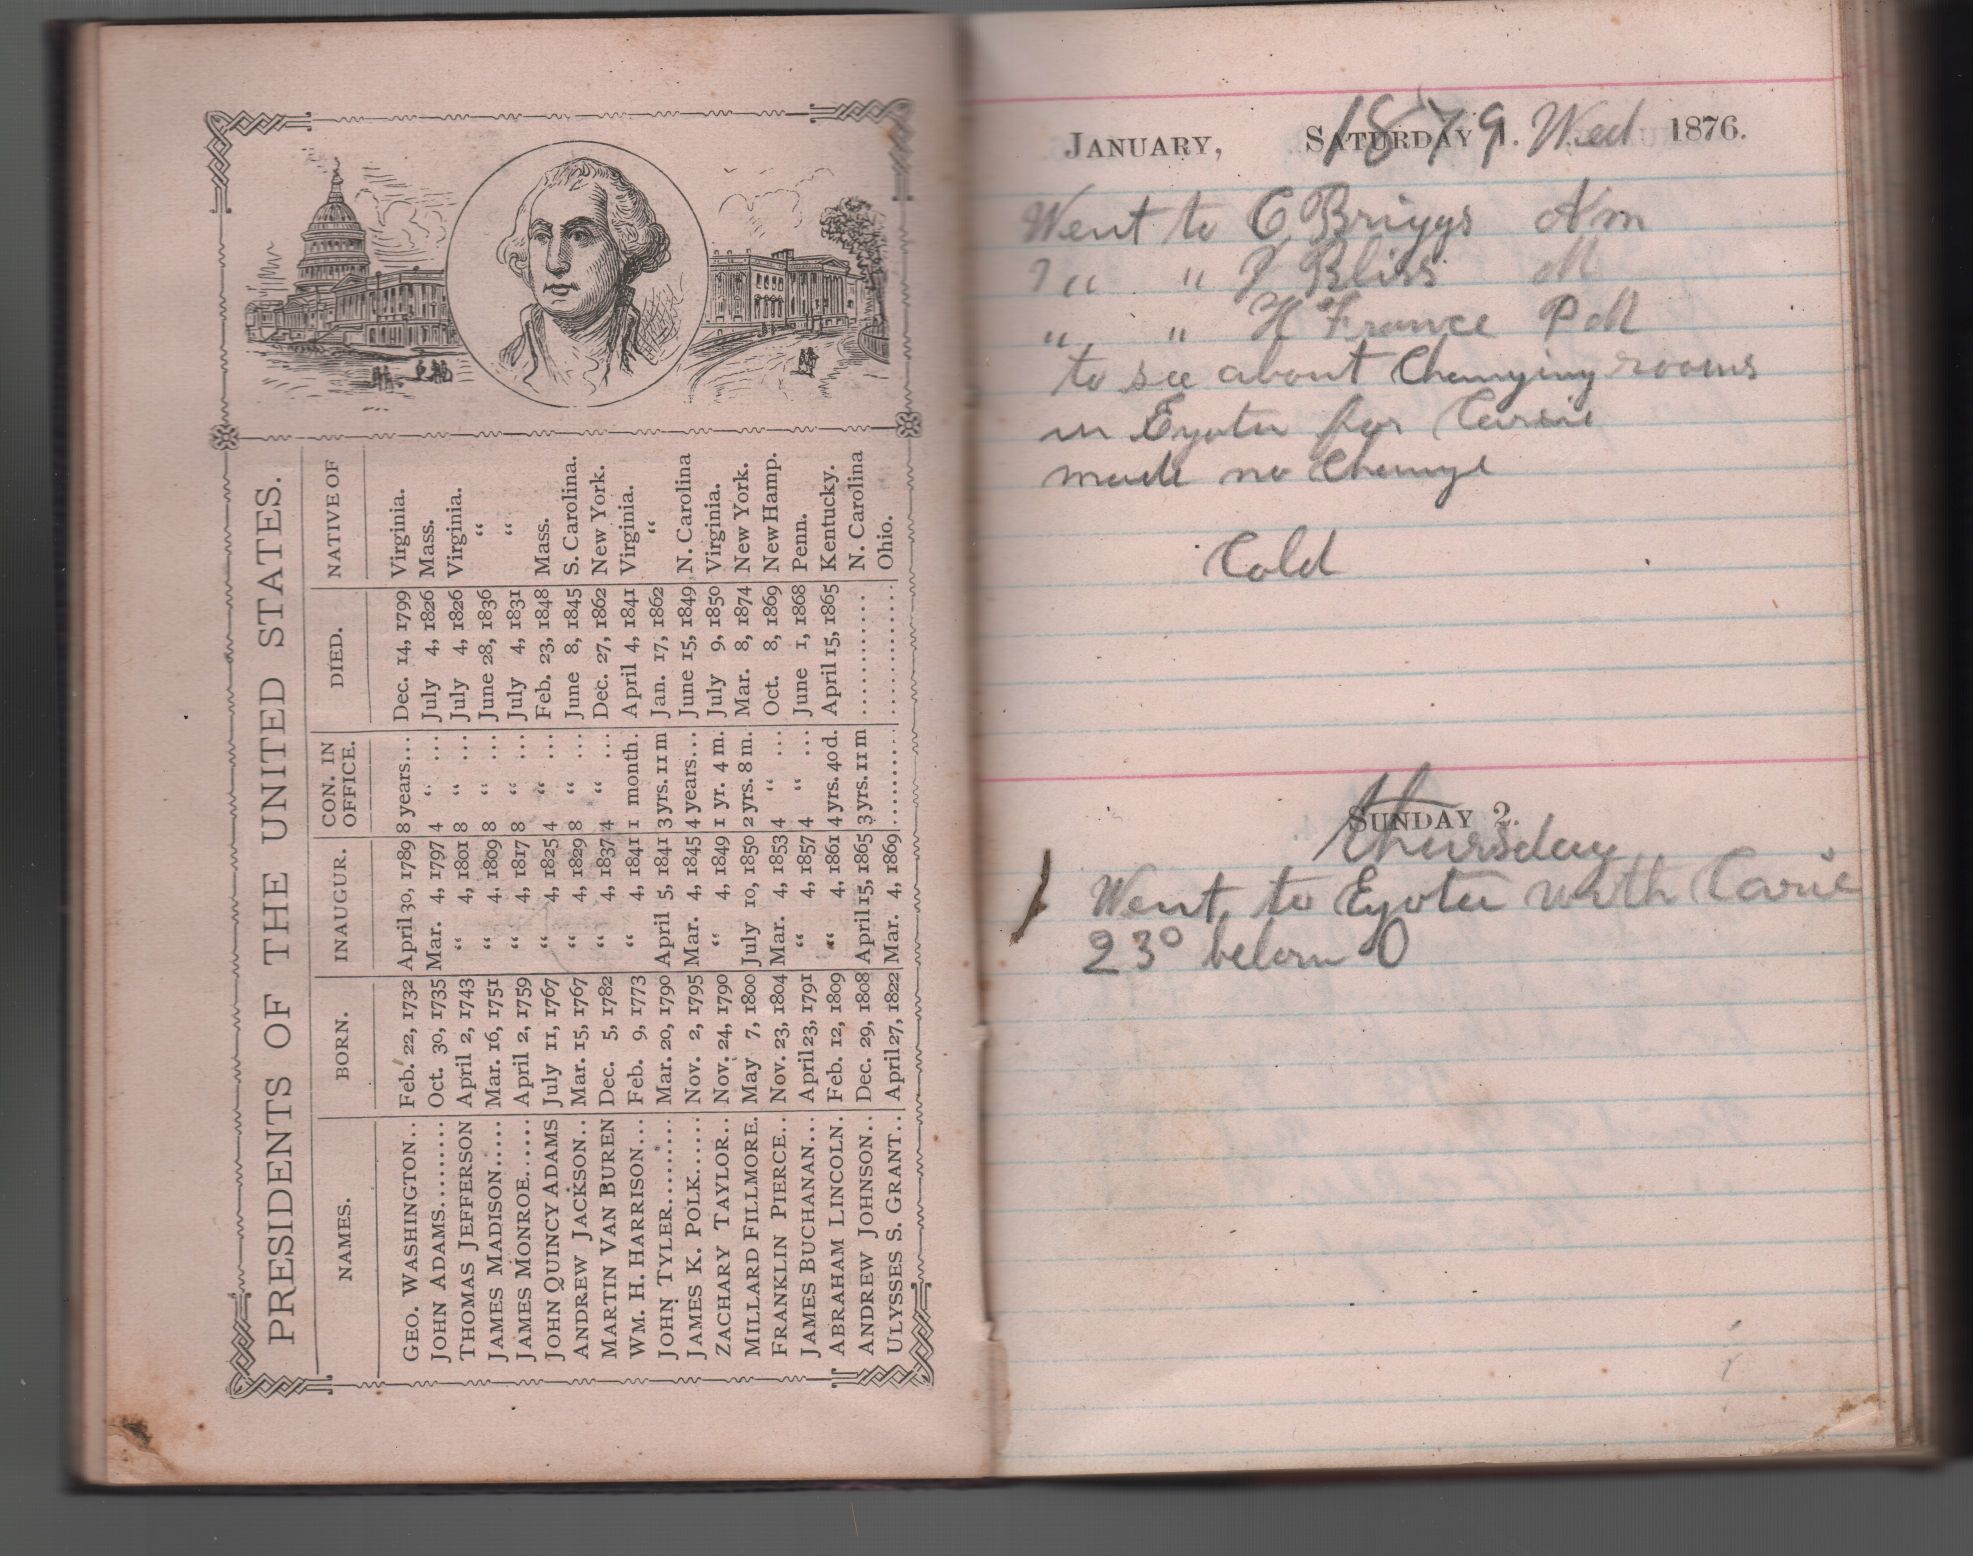 PRESIDENTS OF THE UNITED STATES.
NAMES. BORN. INAUGUR. CON. IN OFFICE. DIED. NATIVE OF
GEO. WASHINGTON.. Feb. 22, 1732 April 30, 1789 8 years... Dec. 14, 1799 Virginia.
JOHN ADAMS........ Oct. 30, 1735 Mar. 4, 1797 4 “ ... July 4, 1826 Mass.
THOMAS JEFFERSON April 2, 1743 “ 4, 1801 8 “ ... July 4, 1826 Virginia.
JAMES MADISON..... Mar. 16, 1751 “ 4, 1809 8 “ ... June 28, 1836 “
JAMES MONROE...... April 2, 1759 “ 4, 1817 8 “ ... July 4, 1831 “
JOHN QUINCY ADAMS July 11, 1767 “ 4, 1825 4 “ ... Feb. 23, 1848 Mass.
ANDREW JACKSON.. Mar. 15, 1767 “ 4, 1829 8 “ ... June 8, 1845 S. Carolina.
MARTIN VAN BUREN Dec. 5, 1782 “ 4, 1837 4 “ ... Dec. 27, 1862 New York.
WM. H. HARRISON... Feb. 9, 1773 “ 4, 1841 1 month. April 4, 1841 Virginia.
JOHN TYLER........ Mar. 20, 1790 April 5, 1841 3 yrs. 11 m Jan. 17, 1862 “
JAMES K. POLK...... Nov. 2, 1795 Mar. 4, 1845 4 years... June 15, 1849 N. Carolina
ZACHARY TAYLOR.. Nov. 24, 1790 “ 4, 1849 1 yr. 4 m. July 9, 1850 Virginia.
MILLARD FILLMORE. May 7, 1800 July 10, 1850 2 yrs. 8 m. Mar. 8, 1874 New York.
FRANKLIN PIERCE.. Nov. 23, 1804 Mar. 4, 1853 4 “ ... Oct. 8, 1869 New Hamp.
JAMES BUCHANAN... April 23, 1791 “ 4, 1857 4 “ ... June 1, 1868 Penn.
ABRAHAM LINCOLN. Feb. 12, 1809 “ 4, 1861 4 yrs. 40 d. April 15, 1865 Kentucky.
ANDREW JOHNSON.. Dec. 29, 1808 April 15, 1865 3 yrs. 11 m .......... N. Carolina
ULYSSES S. GRANT.. April 27, 1822 Mar. 4, 1869 .......... .......... Ohio.
JANUARY, SATURDAY 1. 1876.
1879 Wed
Went to C Briggs
" " J Bliss M
" " H France P M
to see about Changing rooms
in Eyota for Carrie
made no Change
Cold
SUNDAY 2.
thursday
Went to Eyota with Carrie
23° below 0